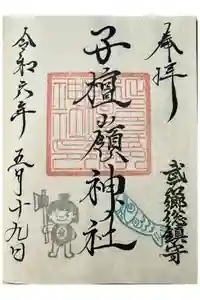 奉拝
武郷総鎮守
子檀嶺神社
令和六年 五月十九日